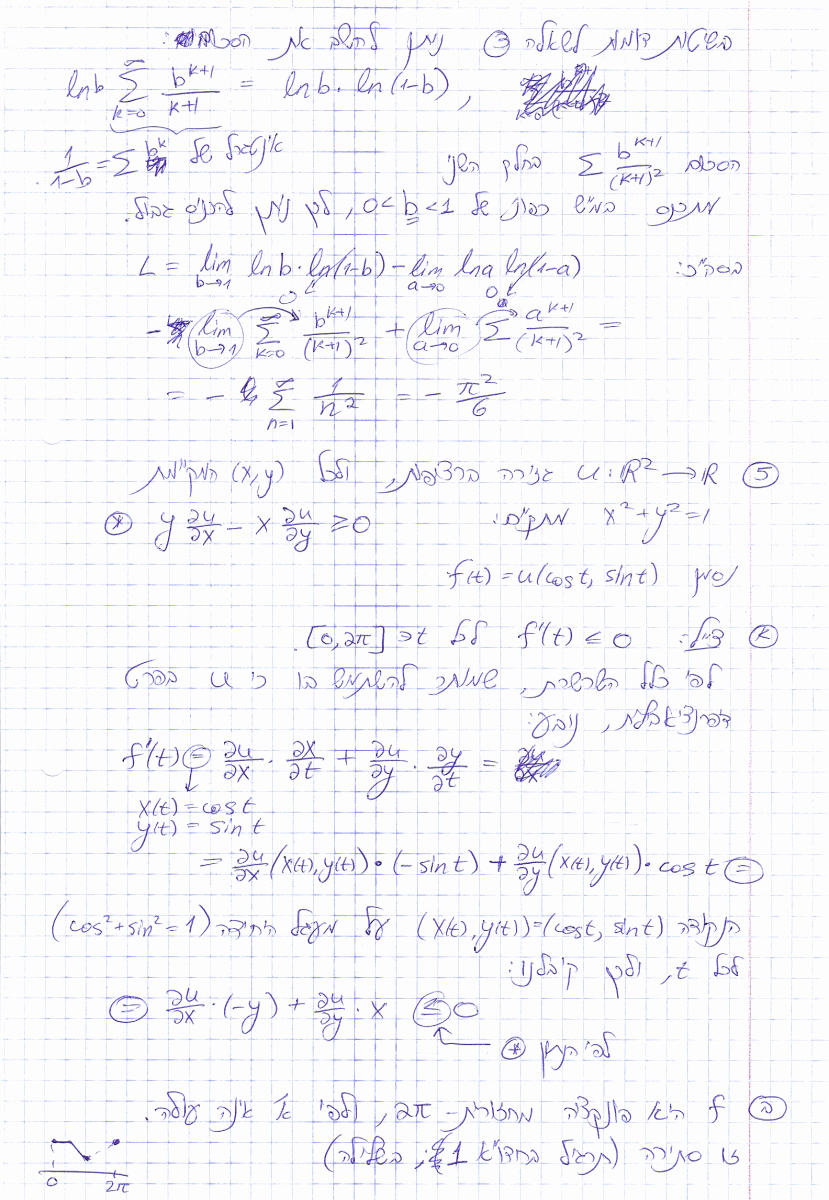 בשיטות דומות לשאלה ③ ניתן לחשב את הסכום:
ln b ∑_{k=0}^{∞} b^{k+1}/(k+1) = ln b · ln(1-b) ,
1/(1-b) = ∑ b^k אינטגרל של
הסכום ∑ b^{k+1}/(k+1)² בחלק השני
מתכנס במ"ש כפונ' של 0<b<1, לכן ניתן להכניס גבול.
בסה"כ: L = lim_{b→1} ln b · ln(1-b) - lim_{a→0} ln a ln(1-a)
0 0
- lim_{b→1} ∑_{k=0}^{∞} b^{k+1}/(k+1)² + lim_{a→0} ∑ a^{k+1}/(k+1)² =
= - ∑_{n=1}^{∞} 1/n² = - π²/6
⑤ u: ℝ² → ℝ גזירה ברציפות, ולכל (x,y) המקיימת
x²+y²=1 מתקיים: y ∂u/∂x - x ∂u/∂y ≥ 0 ⊛
נסמן f(t) = u(cos t, sin t)
א צ"ל: f'(t) ≤ 0 לכל t ∈ [0,2π].
לפי כלל השרשרת, שמותר להשתמש בו כי u בפרט
דיפרנציאבילית, נובע:
f'(t) = ∂u/∂x · ∂x/∂t + ∂u/∂y · ∂y/∂t =
x(t) = cos t
y(t) = sin t
= ∂u/∂x (x(t),y(t)) · (-sin t) + ∂u/∂y (x(t),y(t)) · cos t =
הנקודה (x(t),y(t))=(cos t, sin t) על מעגל היחידה (cos²+sin²=1)
לכל t, ולכן קיבלנו:
= ∂u/∂x · (-y) + ∂u/∂y · x ≤ 0
לפי הנתון ⊛
ב f היא פונקציה מחזורית-2π, ולפי א' אינה עולה.
זו סתירה (תרגיל בחדו"א 1, בשלילה)
0 2π